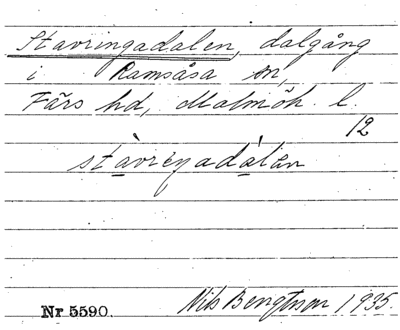 Stavringadalen, dalgång
i Ramsåsa sn,
Färs hd, Malmöh. l.
12
stàvrìŋadàlen
Nr 5590. Nils Bengtsson 1935.